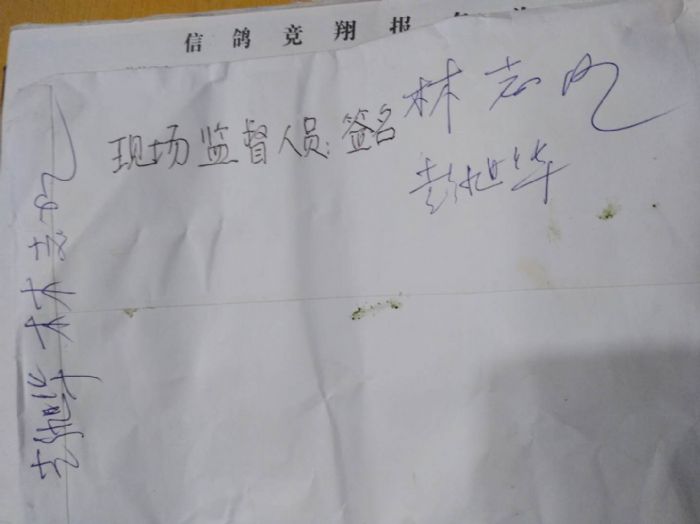 信鸽竞翔报
现场监督人员：签名 林志
彭旭华
彭旭华 林志